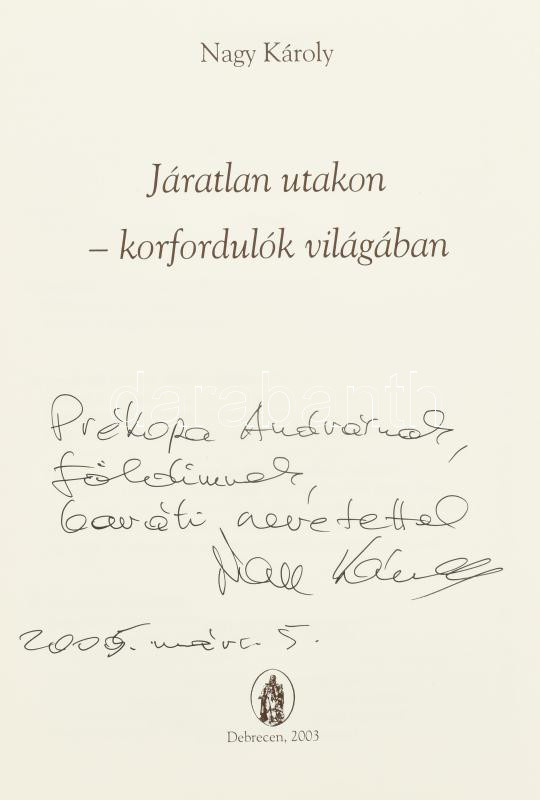 Nagy Károly
Járatlan utakon
– korfordulók világában
darabanth
Prékopa Andrásnak,
földimnek,
baráti szeretettel
Nagy Károly
2005. márc. 5.
Debrecen, 2003